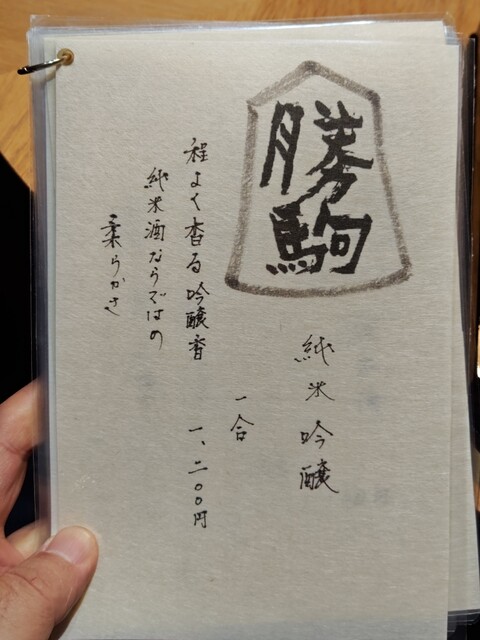 勝駒
純米吟醸
一合
一、二〇〇円
程よく香る吟醸香
純米酒ならではの
柔らかさ